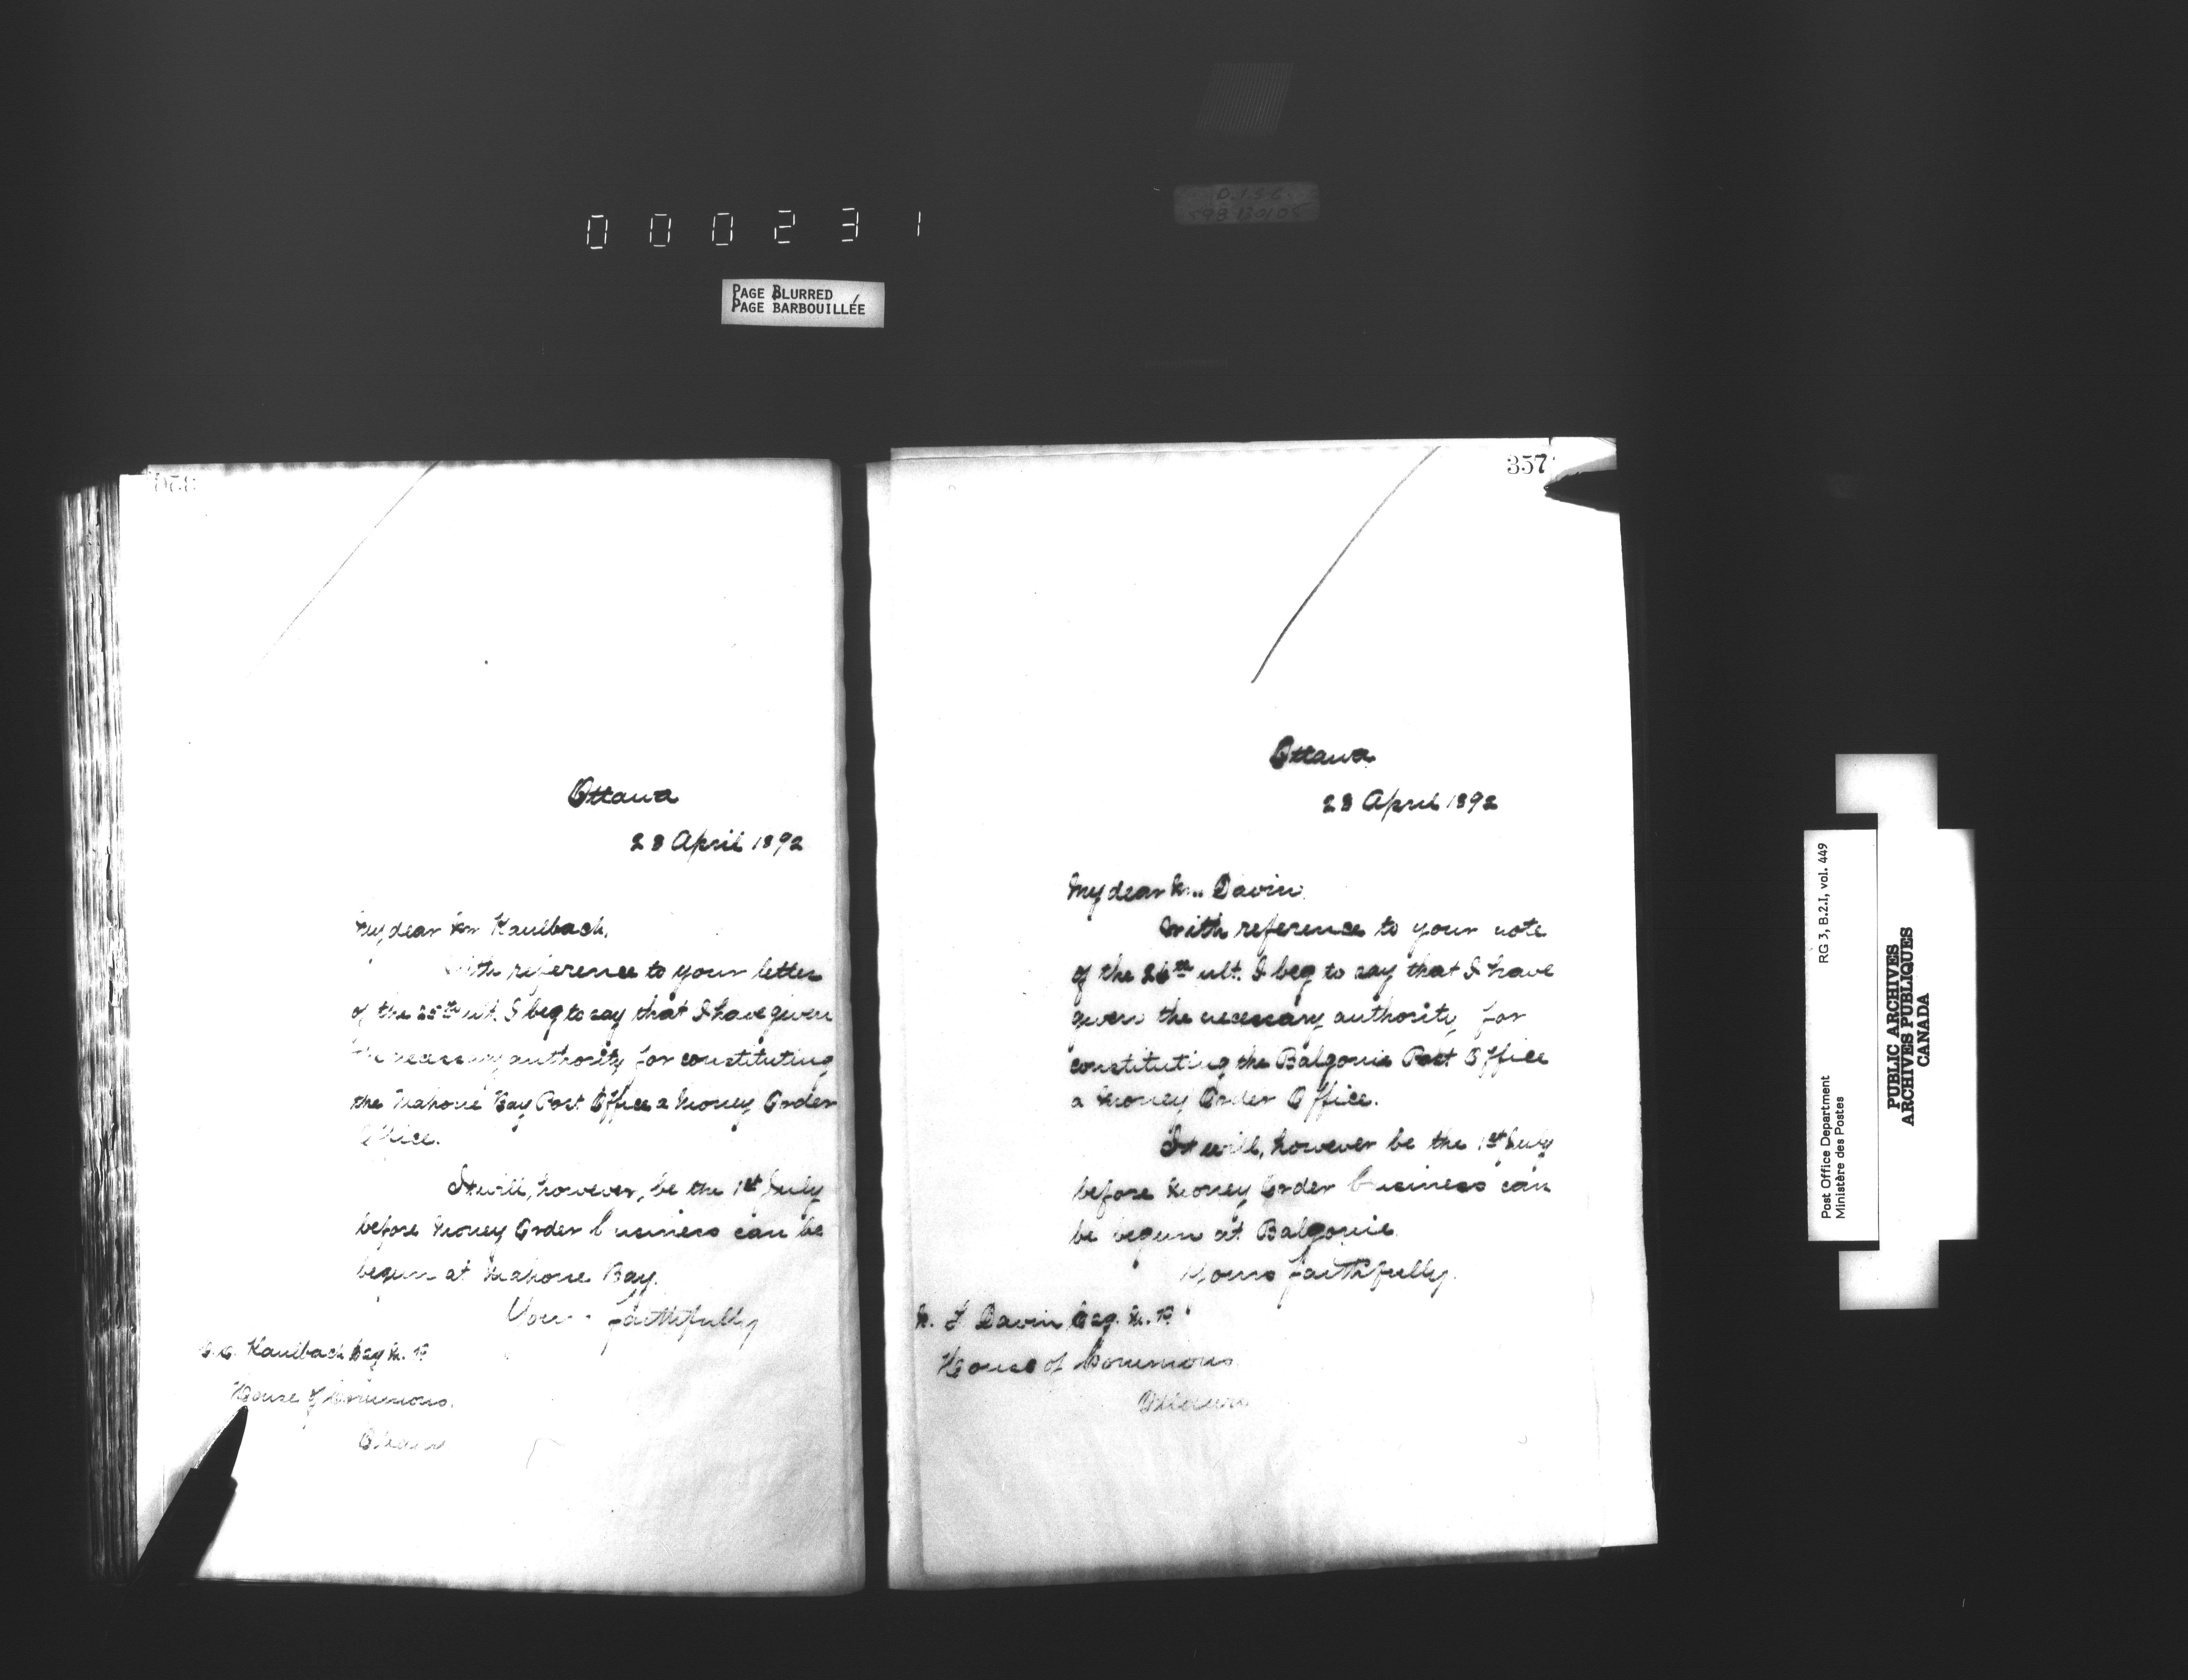 000231
PAGE BLURRED
PAGE BARBOUILLÉE
Ottawa
28 April 1892
My dear Mr Kaulbach,
With reference to your letter
of the 25th ult. I beg to say that I have given
the necessary authority for constituting
the Mahone Bay Post Office a Money Order
Office.
It will, however, be the 1st July
before Money Order business can be
begun at Mahone Bay.
Yours faithfully
C. E. Kaulbach Esq M. P.
House of Commons.
Ottawa
357
Ottawa
28 April 1892
My dear Mr. Davin,
With reference to your note
of the 26th ult. I beg to say that I have
given the necessary authority for
constituting the Balgonie Post Office
a Money Order Office.
It will, however be the 1st July
before Money Order business can
be begun at Balgonie.
Yours faithfully.
N. F. Davin Esq. M. P.
House of Commons
Ottawa
RG 3, B.2.I, vol. 449
Post Office Department
Ministère des Postes
PUBLIC ARCHIVES
ARCHIVES PUBLIQUES
CANADA